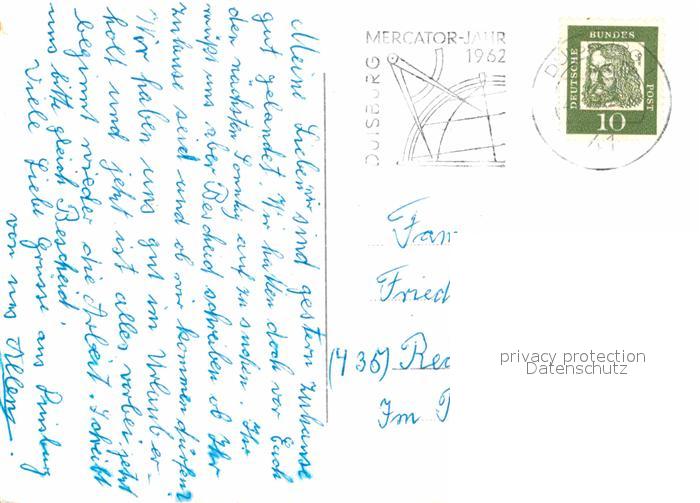 Meine Lieben, wir sind gestern zuhause
gut gelandet. Wir hatten doch vor Euch
den nächsten Sonntag auf zu suchen. Ihr
müßt uns aber Bescheid schreiben ob Ihr
zuhause seid und ob wir kommen dürfen?
Wir haben uns gut im Urlaub er-
holt und jetzt ist alles vorbei, jetzt
beginnt wieder die Arbeit. Schreibt
uns bitte gleich Bescheid.
Viele liebe Grüsse aus Duisburg
von uns Allen.
MERCATOR-JAHR
1962
DUISBURG
DEUTSCHE BUNDES POST
10
41
Fam
Fried
(435) Rec
Im
privacy protection
Datenschutz